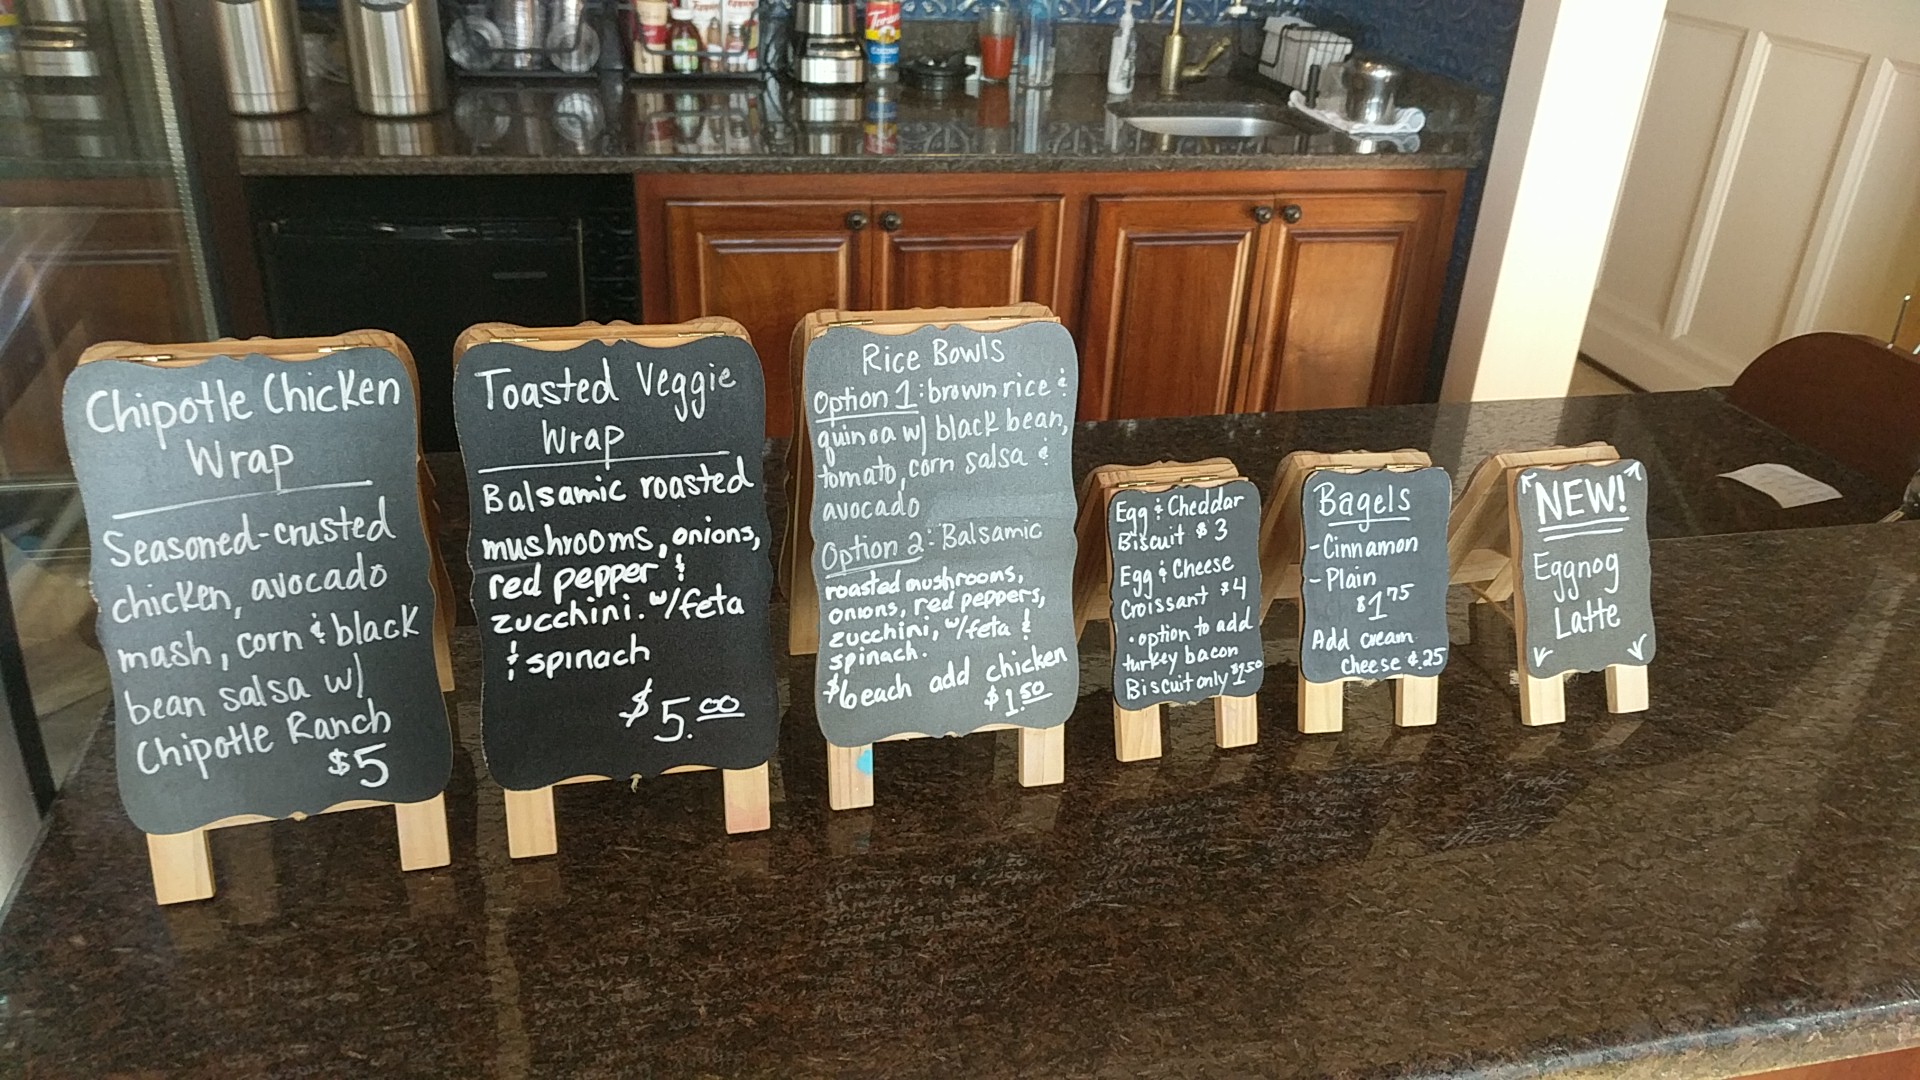 Chipotle Chicken
Wrap
Seasoned-crusted
chicken, avocado
mash, corn & black
bean salsa w/
Chipotle Ranch
$5
Toasted Veggie
Wrap
Balsamic roasted
mushrooms, onions,
red pepper &
zucchini. w/feta
& spinach
$5.00
Rice Bowls
Option 1: brown rice &
quinoa w/ black bean,
tomato, corn salsa &
avocado
Option 2: Balsamic
roasted mushrooms,
onions, red peppers,
zucchini, w/feta &
spinach.
$6 each add chicken
$1.50
Egg & Cheddar
Biscuit $3
Egg & Cheese
Croissant $4
• option to add
turkey bacon
Biscuit only $1.50
Bagels
- Cinnamon
- Plain
$1.75
Add cream
cheese $.25
NEW!
Eggnog
Latte
Torani